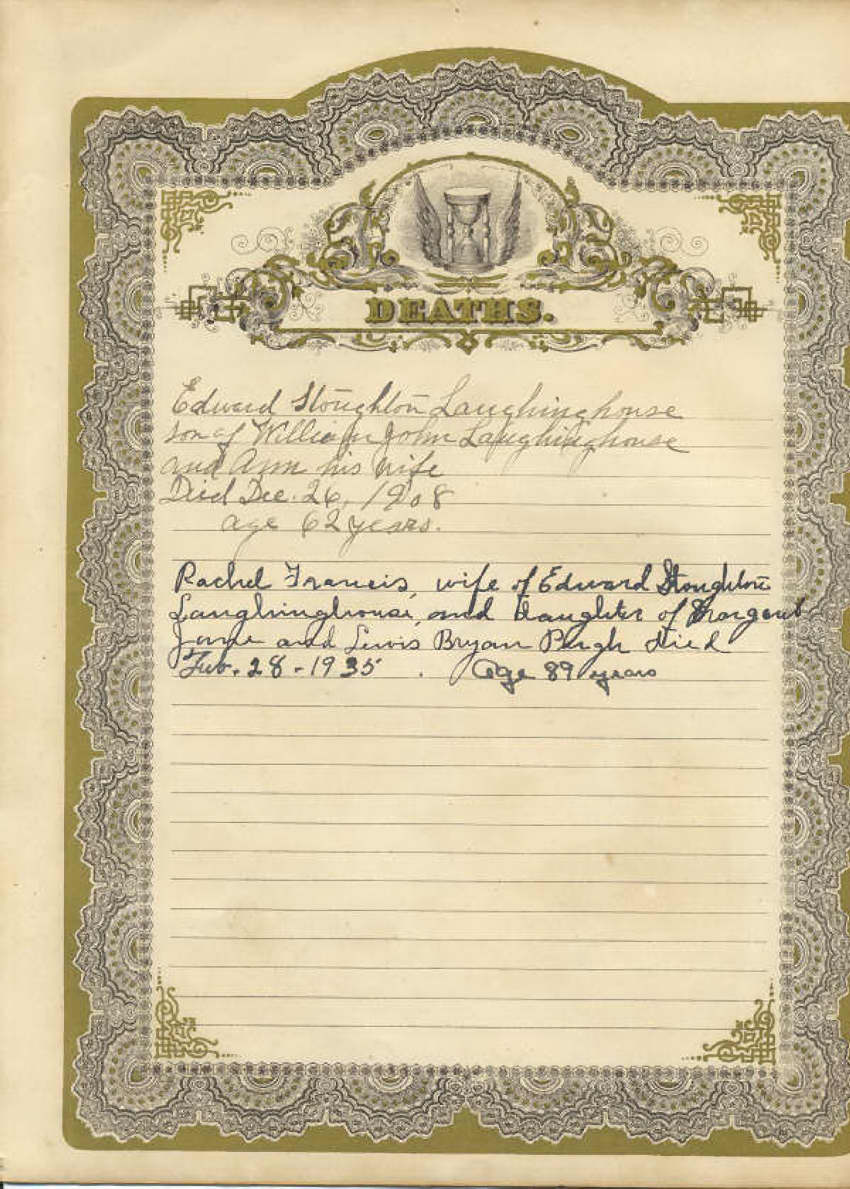 DEATHS.
Edward Stoughton Laughinghouse
son of William John Laughinghouse
and Ann his wife
Died Dec. 26, 1908
age 62 years.
Rachel Francis, wife of Edward Stoughton
Laughinghouse, and daughter of Margaret
Jane and Lewis Bryan Pugh died
Feb. 28 - 1935. Age 89 years